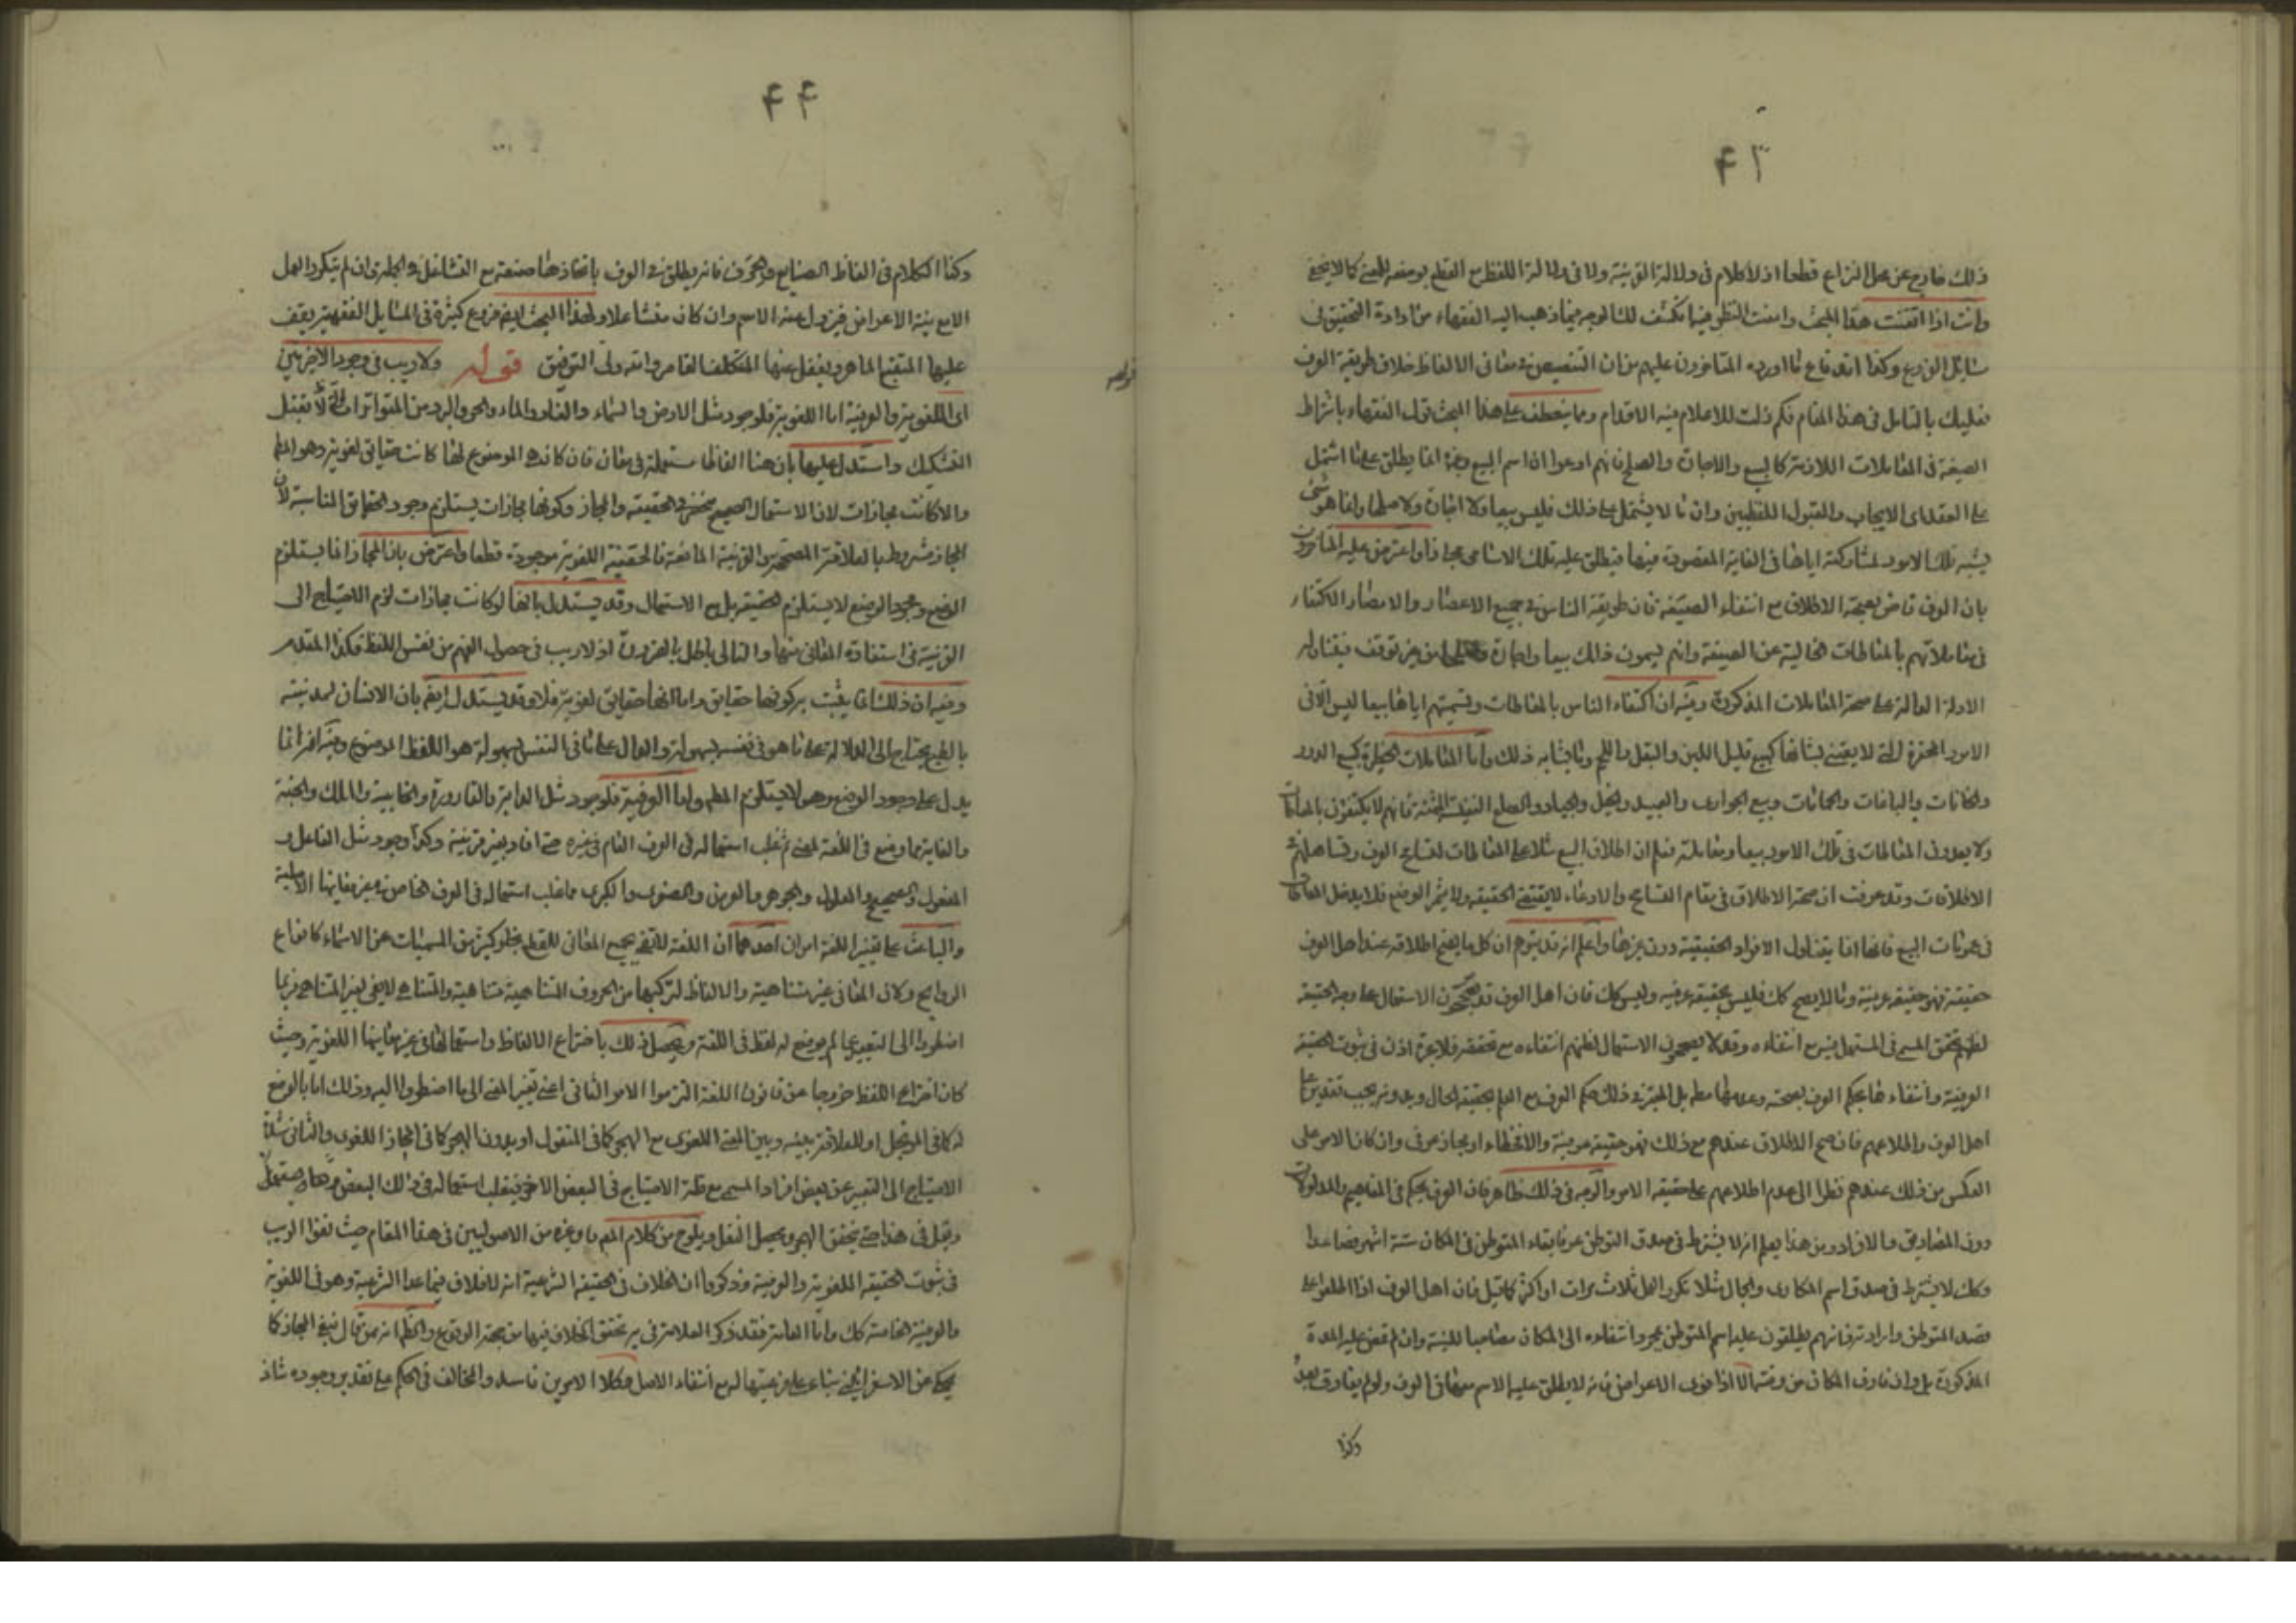 ۴۳
ذلك خارج عن محل النزاع قطعا اذ لا كلام فى دلالة القرينة ولا فى دلالة اللفظ مع القطع بوضعه للمعنى كما لا يخفى
وانت اذا اتقنت هذا المبحث وامعنت النظر فيه انكشف لك الوجه فيما ذهب اليه الفقهاء من ارادة التحقيق فى
مسائل الفروع وكذا اندفاع ما اورده المتاخرون عليهم من ان التنصيص فى معانى الالفاظ خلاف طريقة العرف
فعليك بالتامل فى هذا المقام فكم زلت للاعلام فيه الاقدام ومما ينعطف على هذا المبحث قول الفقهاء باشتراط
الصيغة فى المعاملات اللازمة كالبيع والاجارة والصلح فانهم ادعوا ان اسم البيع وغيره انما يطلق على ما اشتمل
على العقد اى الايجاب والقبول اللفظيين وان ما لا يشتمل على ذلك فليس بيعا ولا اجارة ولا صلحا وانما هو شئ
يشبه تلك الامور لمشاركته اياها فى الغاية المقصودة منها فيطلق عليه تلك الاسامى مجازا واعترض عليه المتاخرون
بان العرف قاض بصحة الاطلاق مع انتفاء الصيغة فان طريقة الناس فى جميع الاعصار والامصار الاكتفاء
فى معاملاتهم بالمعاطات الخالية عن الصيغة وانهم يسمون ذلك بيعا واجارة من غير توقف فيتناوله
الادلة الدالة على صحة المعاملات المذكورة وفيه ان اكتفاء الناس بالمعاطات وتسميتهم اياها بيعا ليس الا فى
الامور المحقرة التى لا يعتنى بشانها كبيع قليل اللبن والبقل واللحم وما يشابه ذلك واما المعاملات الخطيرة كبيع الدور
والخانات والباغات والحمامات وبيع الجوارى والعبيد والخيل والجياد والسلع النفيسة الثمينة فانهم لا يكتفون بالمعاطات
ولا يعدون المعاطات فى تلك الامور بيعا ومعاملة فعلم ان اطلاق البيع مثلا على المعاطات لتسامح العرف وتساهلهم فى
الاطلاقات وقد عرفت ان صحة الاطلاق فى مقام التسامح والادعاء لا يقتضى الحقيقة ولا يثمر الوضع فلا يدخل المعاطات
فى عمومات البيع فانها انما يتناول الافراد الحقيقية دون غيرها واعلم انه قد يتوهم ان كل ما يصح اطلاقه عند اهل العرف
حقيقة فهو حقيقة عرفية وما لا يصح كك فليس بحقيقة عرفيه وليس كك فان اهل العرف قد يصححون الاستعمال على وجه الحقيقة
لظنهم تحقق المسمى فى المستعمل فيه مع انتفاءه وقد لا يصححون الاستعمال لظنهم انتفاءه مع تحققه فلا عبرة اذن فى ثبوت الحقيقة
العرفية وانتفاءها بحكم العرف بصحته وعدمها مطم بل المعتبر فى ذلك حكم العرف مع العلم بحقيقة الحال وبدونه يجب تقدير علم
اهل العرف واطلاعهم فان صح الاطلاق عندهم مع ذلك فهو حقيقة عرفية والا فخطاء او مجاز عرفى وان كان الامر على
العكس من ذلك عندهم نظرا الى عدم اطلاعهم على حقيقة الامر والوجه فى ذلك ظاهر فان العرف يحكم فى المفاهيم والمدلولات
دون المصاديق والافراد ومن هذا يعلم انه لا يشترط فى صدق التوطن عرفا بقاء المتوطن فى المكان ستة اشهر فصاعدا
وكك لا يشترط فى صدق اسم المكارى والجمال مثلا تكرر العمل ثلاث مرات او اكثر كما قيل فان اهل العرف اذا اطلعوا على
قصد المتوطن وارادته فانهم يطلقون عليه اسم المتوطن بمجرد انتقاله الى المكان مصاحبا للنية وان لم تمض عليه المدة
المذكورة بل وان فارق المكان من وقته الا اذا نوى الاعراض فانه لا يطلق عليه الاسم عرفا فى العرف ولو لم يفارق بعد
وكذا
۴۴
وكذا الكلام فى الفاظ الصنايع والحرف فانه يطلق فى العرف باتخاذها صنعة مع التشاغل فى الجملة وان لم يتكرر العمل
الا مع نية الاعراض فيزول عنه الاسم وان كان متشاغلا ولهذا المبحث ايضا فروع كثيرة فى المسايل الفقهية يقف
عليها المتتبع الماهر ويغفل عنها المتكلف القاصر والله ولى التوفيق قوله ولا ريب فى وجود الاخيرتين
اى اللغوية والعرفية اما اللغوية فلوجود مثل الارض والسماء والنار والماء والحر والبرد من المتواترات التى لا تقبل
التشكيك واستدل عليها بان هنا الفاظا مستعملة فى معان فان كانت هى الموضوع لها كانت حقايق لغوية وهو المط
والا كانت مجازات لان الاستعمال الصحيح منحصر فى الحقيقة والمجاز وكونها مجازات يستلزم وجود الحقايق المناسبة لان
المجاز مشروط بالعلاقة المصححة والقرينة المانعة فالحقيقة اللغوية موجودة قطعا واعترض بان المجاز انما يستلزم
الوضع ومجرد الوضع لا يستلزم الحقيقة بل مع الاستعمال وقد يستدل بانها لو كانت مجازات لزم الاحتياج الى
القرينة فى استفادة المعانى منها والتالى باطل بالضرورة اذ لا ريب فى حصول الفهم من نفس اللفظ فكذا المقدم
وفيه ان ذلك انما يثبت به كونها حقايق واما انها حقايق لغوية فلا وقد يستدل ايضم بان الانسان لمدنيته
بالطبع يحتاج الى الدلالة على ما هو فى نفسه بسهولة والدال على ما فى النفس بسهولة هو اللفظ الموضوع وفيه انه انما
يدل على وجود الوضع وهو لا يستلزم المطم واما العرفية فلوجود مثل الدابة والقارورة والخابية والملك والجنة
والغاية مما وضع فى اللغة لمعنى ثم غلب استعماله فى العرف العام فى غيره حتى افاد بغير قرينة وكذا وجود مثل الفاعل و
المفعول والصحيح والمعلول والجوهر والعرض والصغرى والكبرى مما غلب استعماله فى العرف الخاص فى غير معانيها الاصلية
والباعث على تغيير اللغة امران احدهما ان اللغة لا تفى بجميع المعانى للقطع بخلو كثير من المسميات عن الاسماء كانواع
الروايح ولان المعانى غير متناهية والالفاظ لتركبها من الحروف المتناهية متناهية والمتناهى لا يفى لغير المتناهى فربما
اضطروا الى التعبير عما لم يوضع له لفظ فى اللغة ويحصل ذلك باختراع الالفاظ واستعمالها فى غير معانيها اللغوية وحيث
كان اختراع اللفظ خروجا عن قانون اللغة التزموا الامر الثانى اعنى تغيير المعنى الى ما اضطروا اليه وذلك اما بالوضع
له كما فى المرتجل او للعلاقة بينه وبين المعنى اللغوى مع الهجر كما فى المنقول او بدون الهجر كما فى المجاز اللغوى والثانى شدة
الاحتياج الى التعبير عن بعض افراد المسمى مع قلة الاحتياج فى البعض الاخر فيغلب استعماله فى ذلك البعض
ويقل فى هذا حتى يتحقق الهجر ويحصل النقل ويلوح من كلام المص وغيره من الاصوليين فى هذا المقام حيث نفوا الريب
فى ثبوت الحقيقة اللغوية والعرفية وذكروا ان الخلاف فى الحقيقة الشرعية انه لا خلاف فيما عدا الشرعية وهو فى اللغوية
والعرفية الخاصة كك واما العامة فقد ذكر العلامة فى يه تحقق الخلاف فيها من جهة الوقوع والظم انه ممن قال بنفى المجاز كما
يحكى عن الاسفراينى بناء على فرعيتها له مع انتفاء الاصل وكلا الامرين فاسد والمخالف فى الحكم على تقدير وجوده شاذ